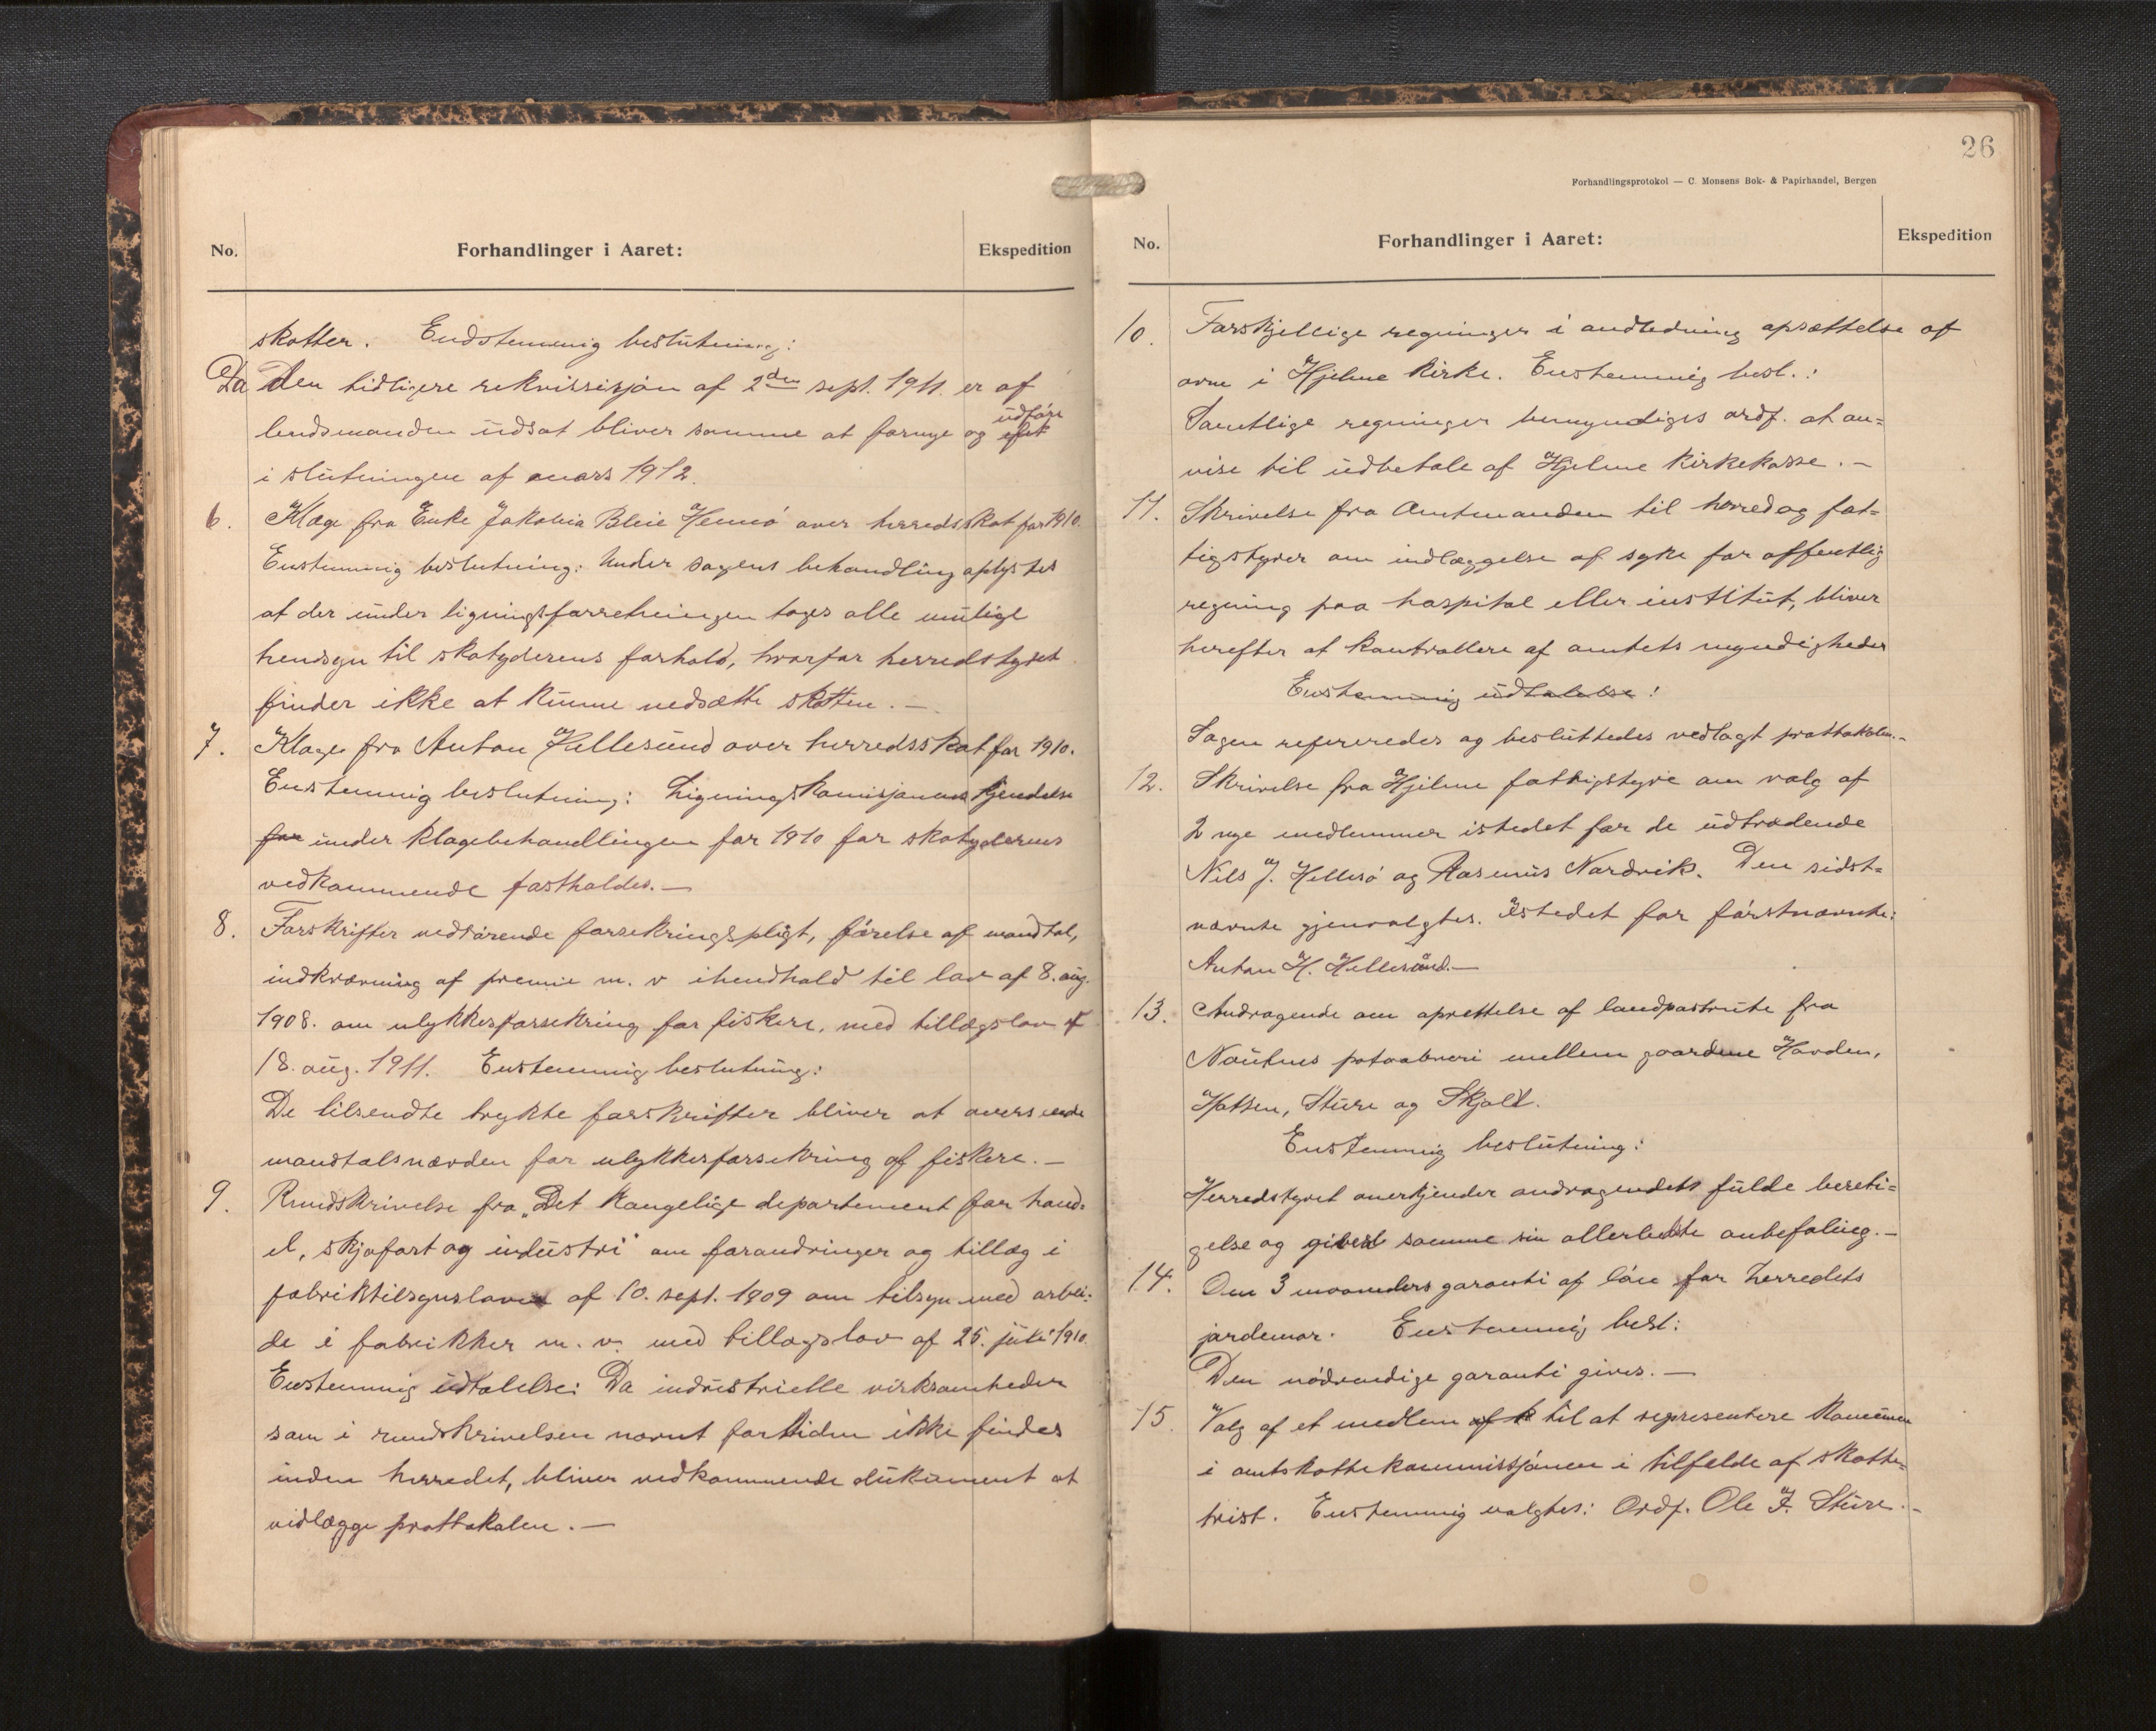 No.
Forhandlinger i Aaret:
Ekspedition
skatter. Endstemmig beslutning:
Da den tidligere rekvisisjon af 2den sept. 1911. er af
lensmanden udsat bliver samme at fornye og udføre
i slutningen af mars 1912.
6. Klage fra Enke Jakobia Bleie Hernø over herredsskat for 1910.
Enstemmig beslutning: Under sagens behandling oplystes
at der under ligningsforretningen toges alle mulige
hensyn til skatyderens forhold, hvorfor herredstyret
finder ikke at kunne nedsætte skatten. —
7. Klage fra Anton Hellesund over herredsskat for 1910.
Enstemmig beslutning: Ligningskomisjonens kjendelse
for under klagebehandlingen for 1910 for skatyderens
vedkommende fastholdes. —
8. Forskrifter vedrørende forsekringspligt, førelse af mandtal,
indkrævning af premie m. v ihendhold til lov af 8. aug.
1908. om ulykkesforsekring for fiskere, med tillægslov af
18. aug. 1911. Enstemmig beslutning:
De tilsendte trykte forskrifter bliver at oversende
mandtalsnævnden for ulykkesforsekring af fiskere. —
9. Rundskrivelse fra „Det kongelige departement for hand-
el, skjofart og industri" om forandringer og tillæg i
fabriktilsynsloven af 10. sept. 1909 om tilsyn med arbei-
de i fabrikker m. v. med tillægslov af 25. juli 1910.
Enstemmig udtalelse: Da industrielle virksomheder
som i rundskrivelsen nævnt fortiden ikke findes
inden herredet, bliver vedkommende dokument at
vidlægge prottokolen. —
26
Forhandlingsprotokol — C. Monsens Bok- & Papirhandel, Bergen
No.
Forhandlinger i Aaret:
Ekspedition
10. Forskjellige regninger i andledning opsættelse af
ovne i Hjelme kirke. Enstemmig besl.:
Samtlige regninger bemyndiges ordf. at an=
vise til udbetale af Hjelme kirkekasse. —
11. Skrivelse fra Amtmanden til herred og fat=
tigstyrer om indlæggelse af syke for offentlig
regning paa hospital eller institut, bliver
herefter at kontrollere af amtets myndigheder
Enstemmig udtalelse:
Sagen refereredes og besluttedes vedlagt prottokolen. -
12. Skrivelse fra Hjelme fattigstyre om valg af
2 nye medlemmer istedet for de udtrædende
Nils J. Hellesø og Rasmus Nordvik. Den sidst=
nævnte gjenvalgtes. Istedet for førstnævnte:
Anton H. Hellesund. —
13. Andragende om oprettelse af landpostrute fra
Nautnes postaabneri mellem gaardene Havden,
Hatten, Sture og Skjold.
Enstemmig beslutning:
Herredstyret anerkjender andragendets fulde bereti=
gelse og givest samme sin allerbedste anbefaling. —
14. Om 3 maaneders garanti af lån for herredets
jordemor. Enstemmig besl:
Den nødvendige garanti gives. —
15. Valg af et medlem af k til at representere kommunen
i amtskattekommissjonen i tilfelde af skatte-
trist. Enstemmig valgtes: Ordf. Ole J. Sture. -